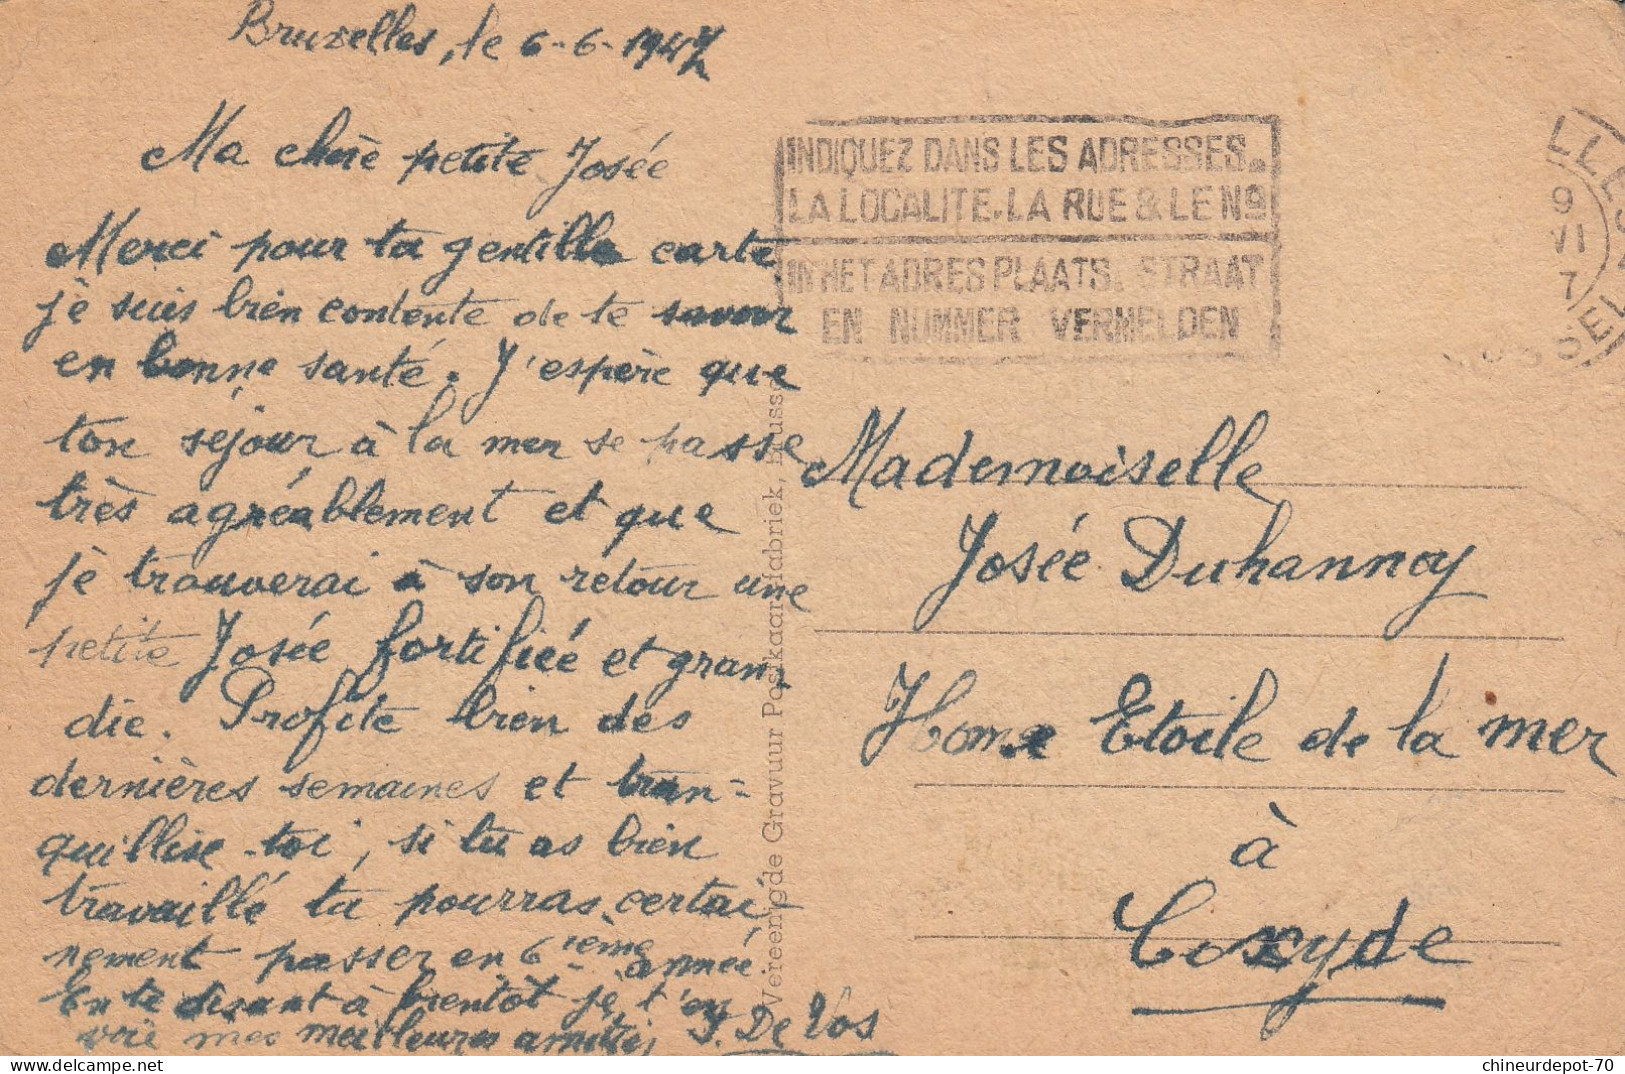 Bruxelles, le 6-6-1947
Ma chère petite Josée
Merci pour ta gentille carte
je suis bien contente de te savoir
en bonne santé. J'espère que
ton séjour à la mer se passe
très agréablement et que
je trouverai à son retour une
petite Josée fortifiée et gran-
die. Profite bien des
dernières semaines et tran=
quillise-toi, si tu as bien
travaillé tu pourras certai-
nement passer en 6ième année
En te disant à bientôt je t'en
voie mes meilleures amitiés J. De Vos
Vereenigde Gravuur Postkaartfabriek, Brussel
INDIQUEZ DANS LES ADRESSES
LA LOCALITE, LA RUE & LE No
IN HET ADRES PLAATS, STRAAT
EN NUMMER VERMELDEN
LLES
9
VI
7
SSEL
Mademoiselle
Josée Duhannoy
Home Etoile de la mer
à
Coxyde
chineurdepot-70